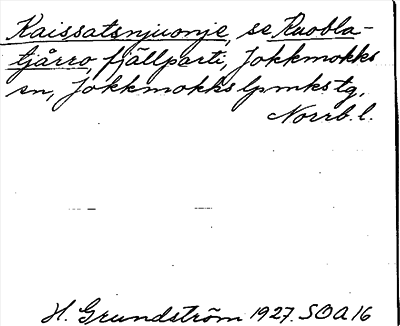 Kaissatsnjuonje, se Ruobla-
tjårro, fjällparti, Jokkmokks
sn, Jokkmokks lpmkstg,
Norrb. l.
H. Grundström 1927. SOA 16